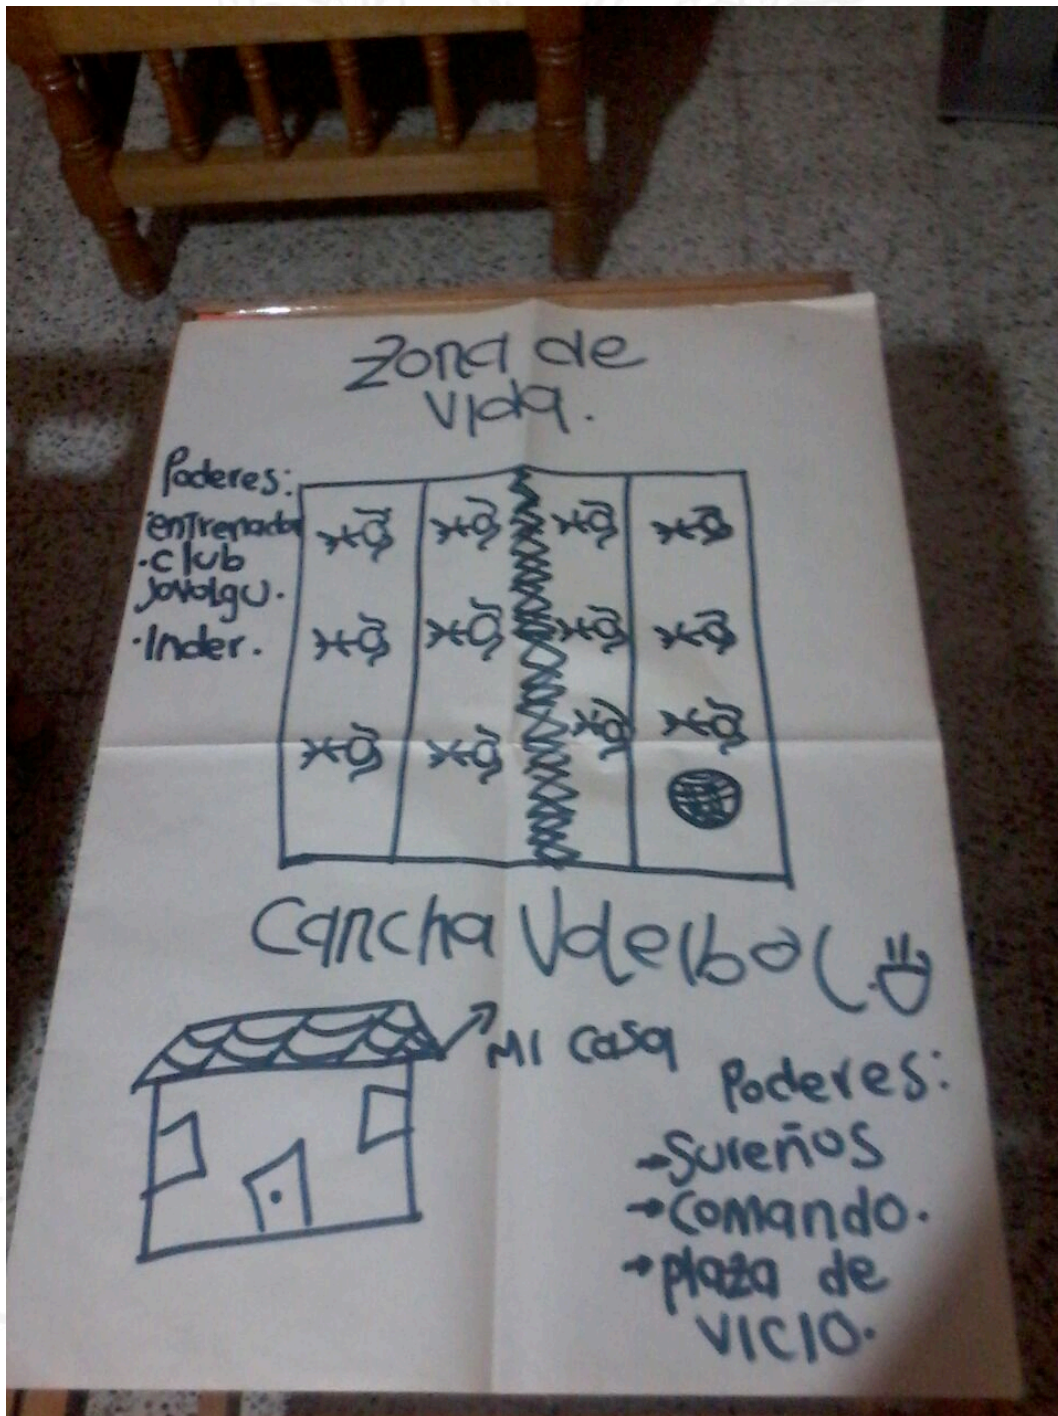 Zona de
vida.
Poderes:
entrenador
·Club
Jovolgu.
·Inder.
Cancha Voleibol
Mi casa
Poderes:
→Sureños
→Comando.
→plaza de
vicio.